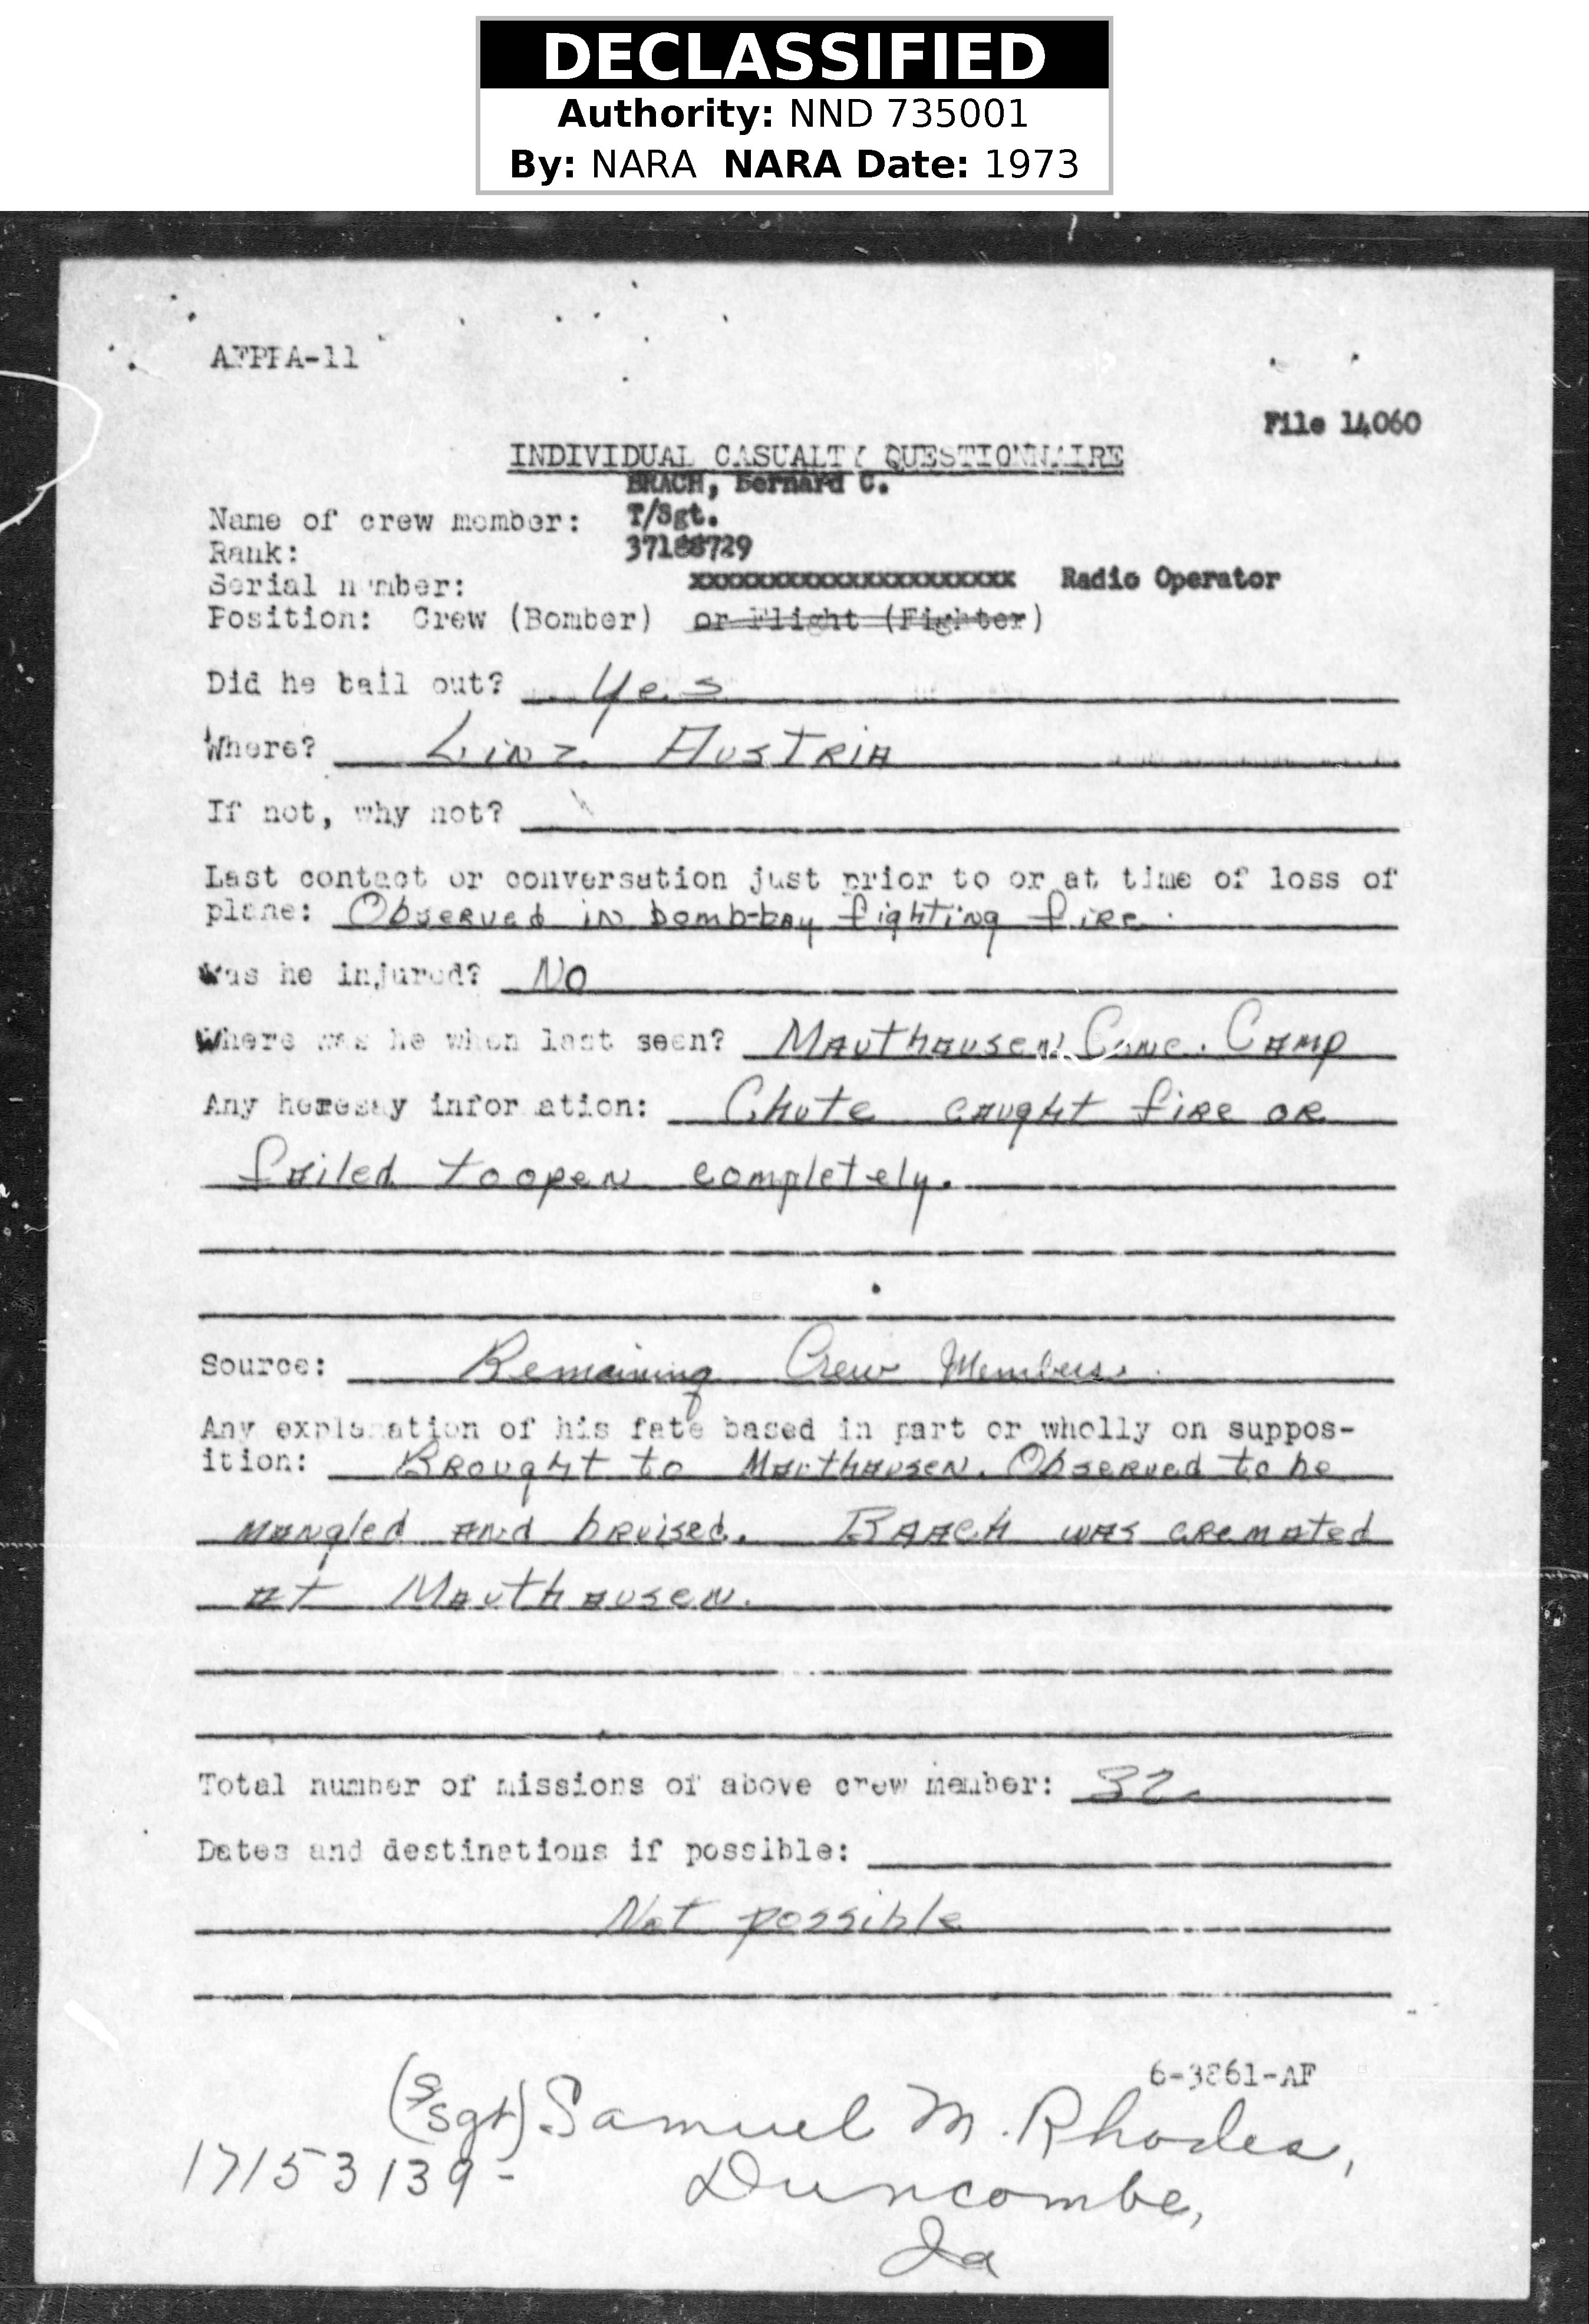 DECLASSIFIED
Authority: NND 735001
By: NARA NARA Date: 1973
AFPPA-11
File 14060
INDIVIDUAL CASUALTY QUESTIONNAIRE
BRACH, Bernard C.
Name of crew member: T/Sgt.
Rank: 37188729
Serial number: xxxxxxxxxxxxxxxxxxxxx Radio Operator
Position: Crew (Bomber) or Flight (Fighter)
Did he bail out? Yes
Where? Linz Austria
If not, why not?
Last contact or conversation just prior to or at time of loss of
plane: Observed in bomb-bay fighting fire.
Was he injured? No
Where was he when last seen? Mauthausen Conc. Camp
Any heresay information: Chute caught fire or
failed to open completely.
Source: Remaining Crew Members.
Any explanation of his fate based in part or wholly on suppos-
ition: Brought to Mauthausen. Observed to be
mangled and bruised. was cremated
at Mauthausen.
Total number of missions of above crew member: 32
Dates and destinations if possible:
Not possible
6-3861-AF
(S/Sgt) Samuel M. Rhodes,
17153139- Duncombe,
Ia